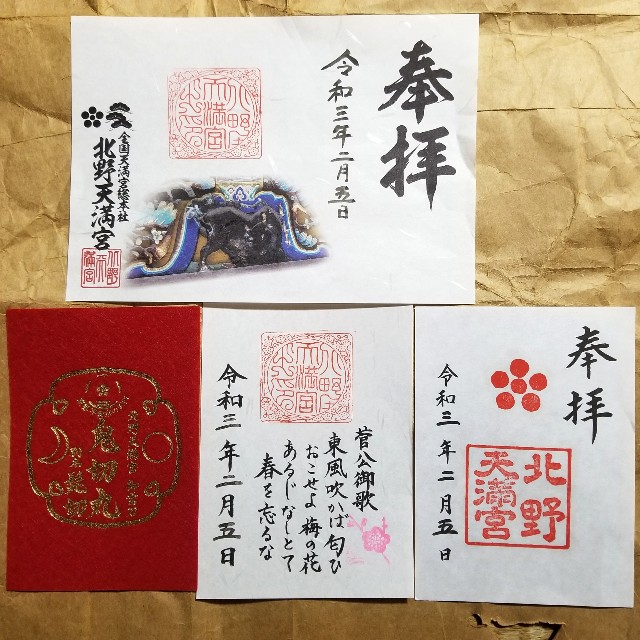 奉拝
令和三年二月五日
北野
天満宮
全国天満宮総本社
北野天満宮
鬼切丸
菅公御歌
東風吹かば匂ひ
おこせよ梅の花
あるじなしとて
春を忘るな
令和三年二月五日
奉拝
北野
天満宮
令和三年二月五日